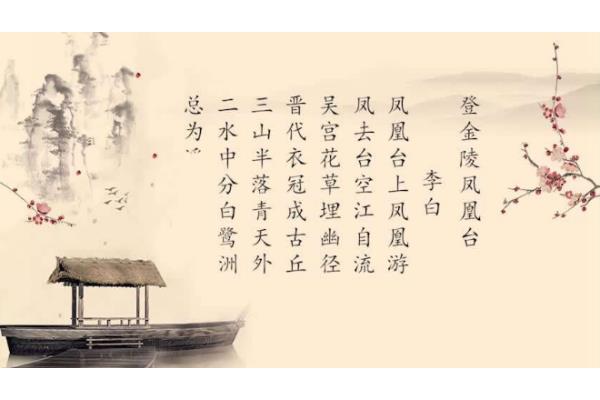 登金陵凤凰台
李白
凤凰台上凤凰游
凤去台空江自流
吴宫花草埋幽径
晋代衣冠成古丘
三山半落青天外
二水中分白鹭洲
总为